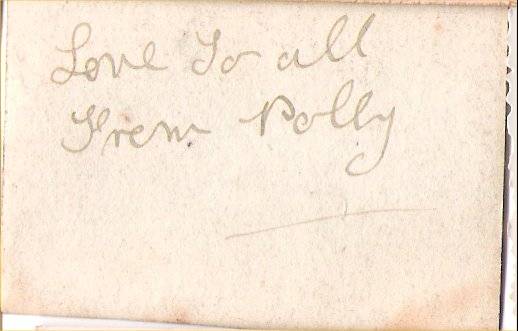 Love To all
From Polly